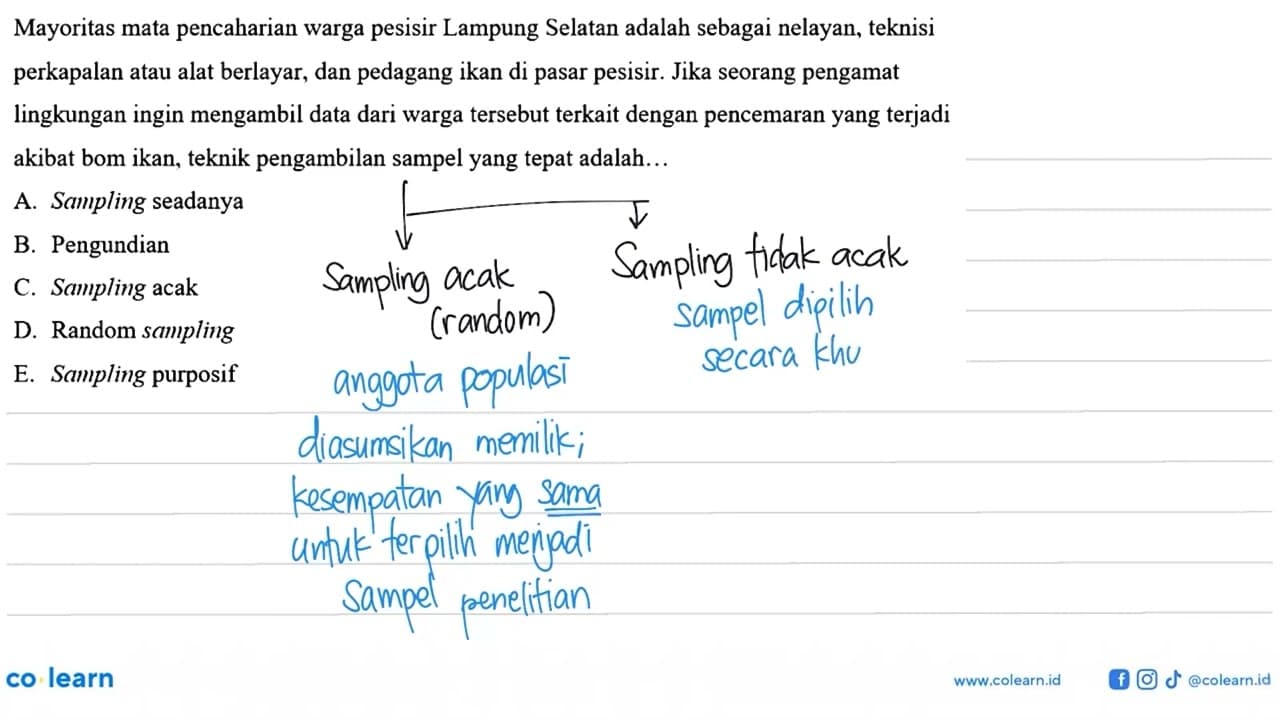 Mayoritas mata pencaharian warga pesisir Lampung Selatan adalah sebagai nelayan, teknisi
perkapalan atau alat berlayar, dan pedagang ikan di pasar pesisir. Jika seorang pengamat
lingkungan ingin mengambil data dari warga tersebut terkait dengan pencemaran yang terjadi
akibat bom ikan, teknik pengambilan sampel yang tepat adalah...
A. Sampling seadanya
B. Pengundian
C. Sampling acak
D. Random sampling
E. Sampling purposif
Sampling acak
(random)
anggota populasi
diasumsikan memiliki
kesempatan yang sama
untuk terpilih menjadi
Sampel penelitian
Sampling tidak acak
sampel dipilih
secara khu
co learn
www.colearn.id
@colearn.id